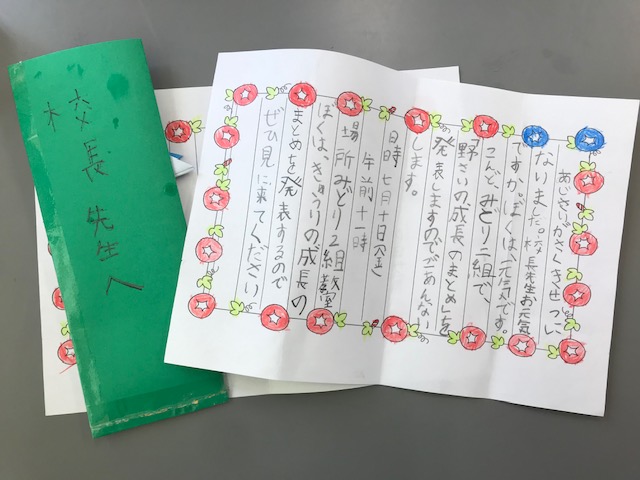 校長先生へ
あじさいがさくきせつに
なりました。校長先生お元気
ですか。ぼくは、元気です。
こんど、みどり二組で、
「野さいの成長のまとめ」を
発表しますのでごあんない
します。
日時 七月十日(金)
午前十一時
場所 みどり2組教室
ぼくは、きゅうりの成長の
まとめを発表するので
ぜひ見に来てください